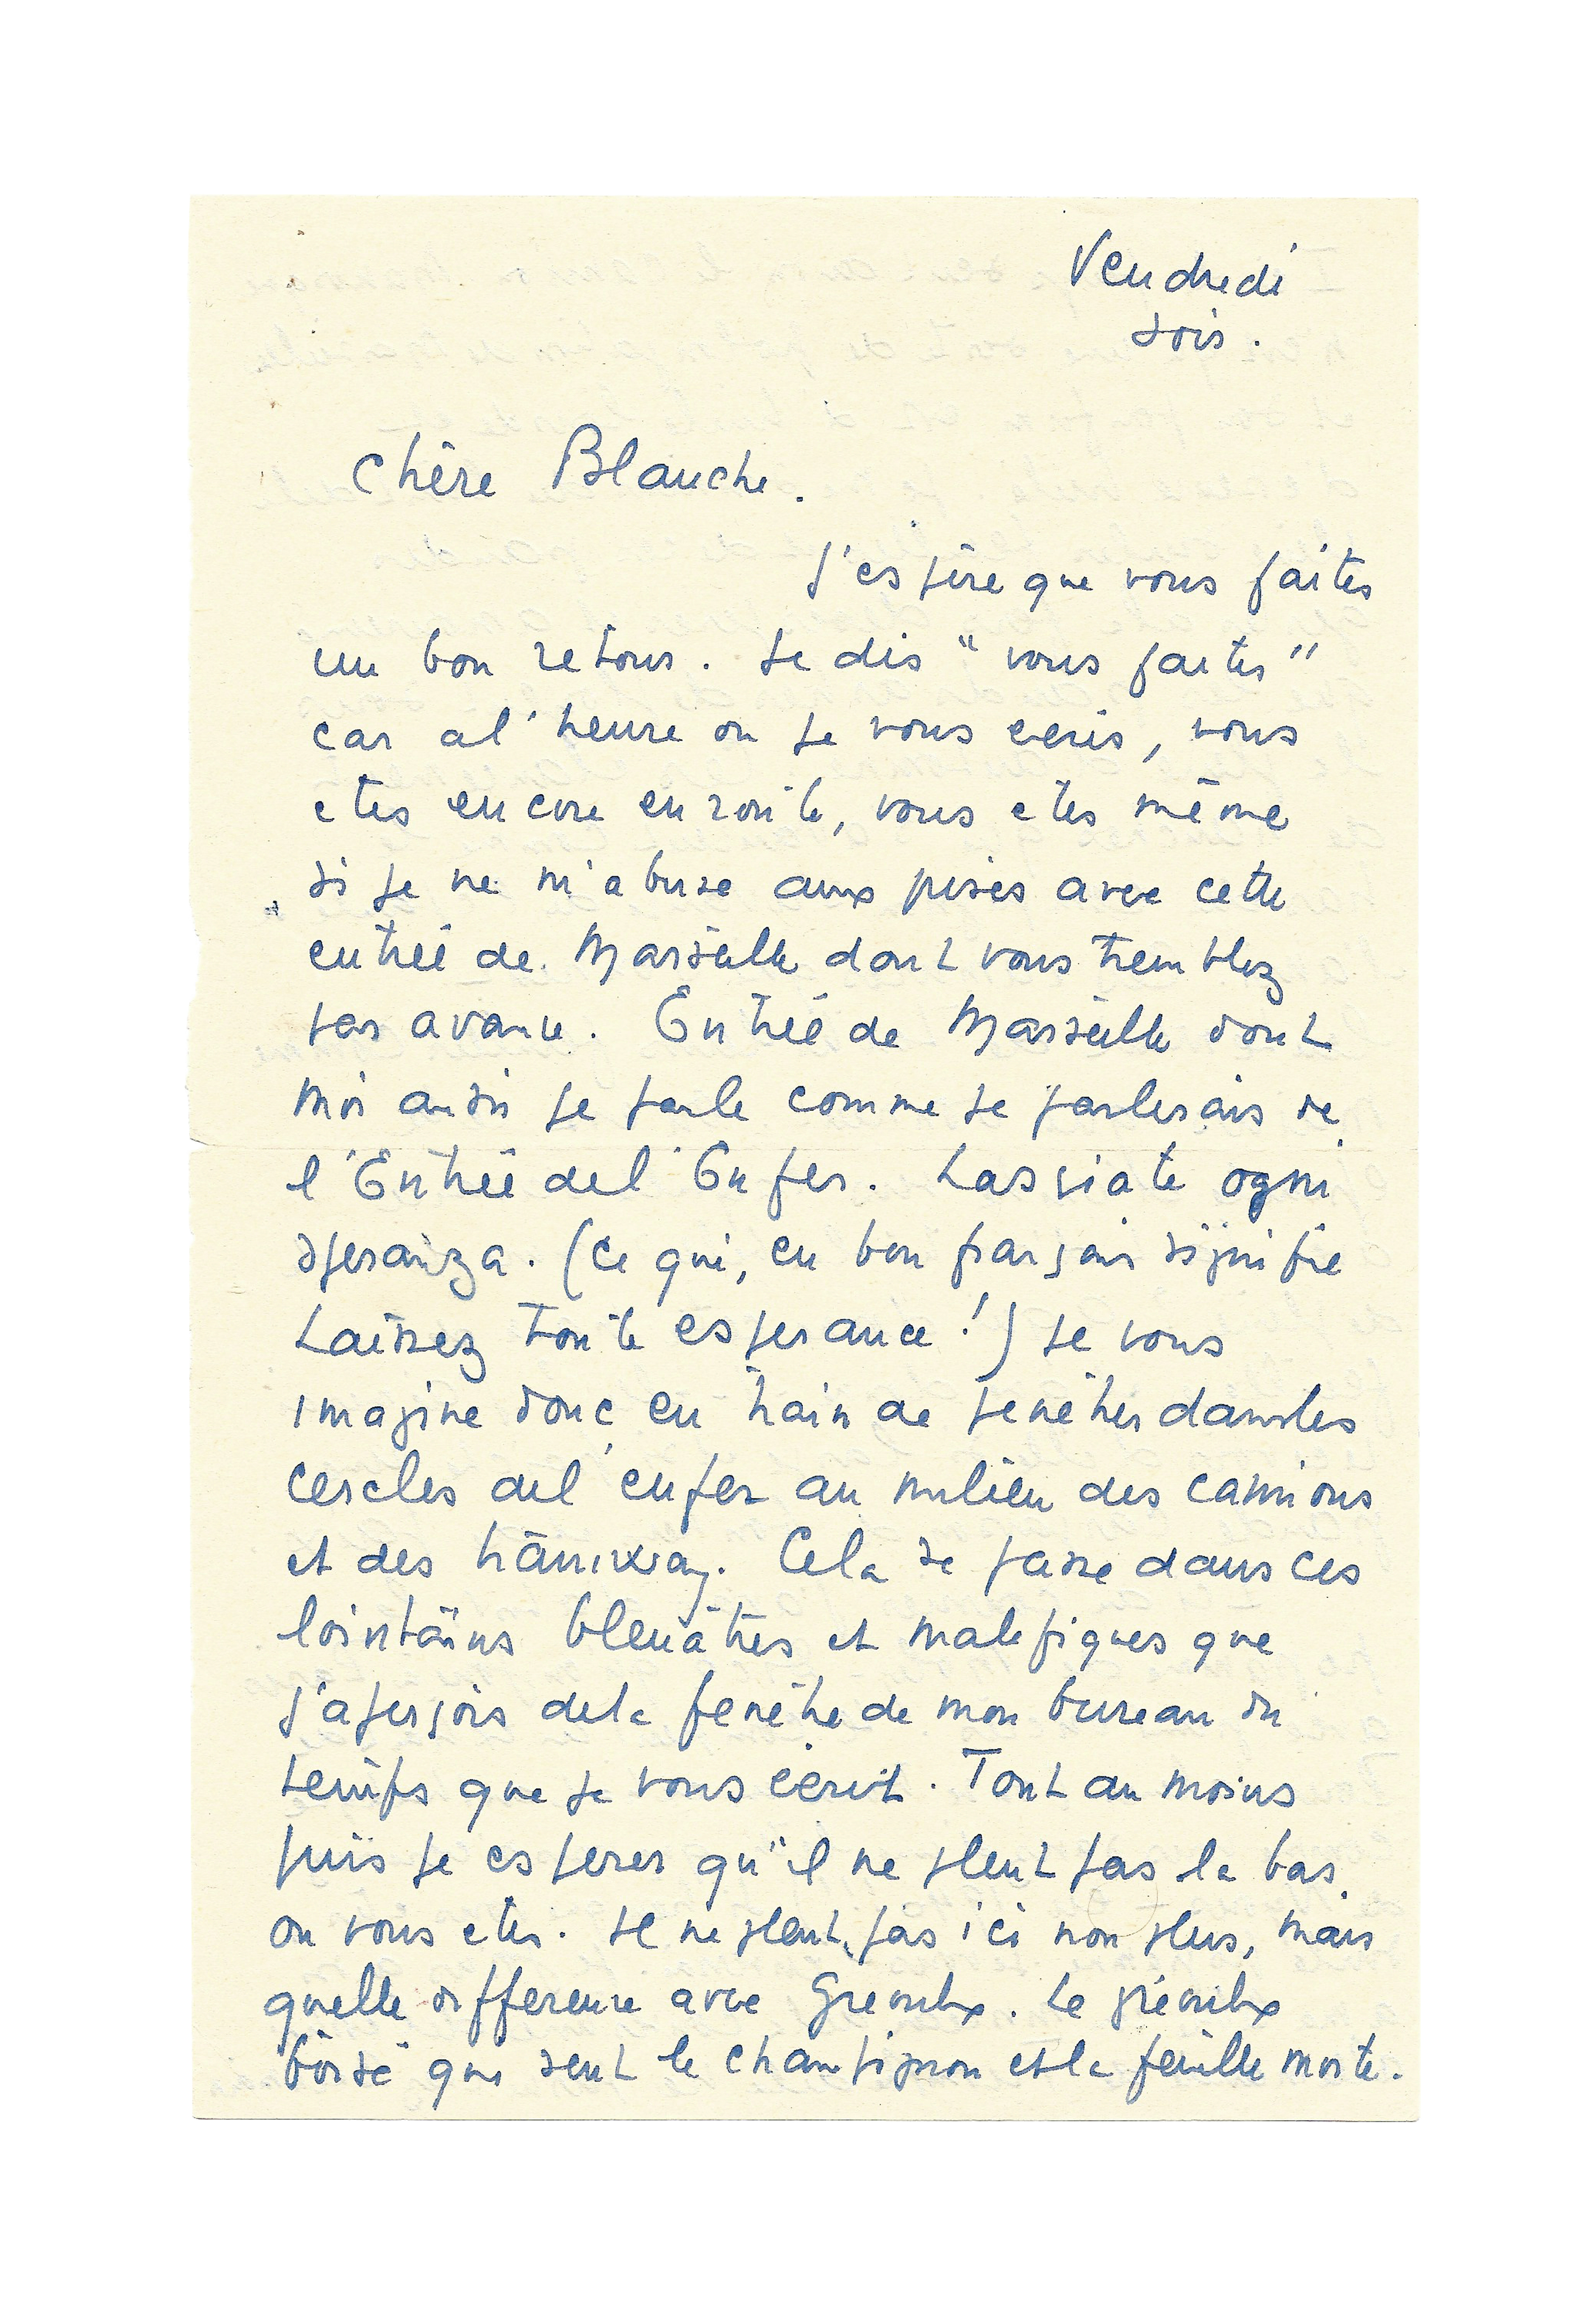 Vendredi
soir.
Chère Blanche.
J'espère que vous faites
un bon retour. Je dis "vous faites"
car a l'heure ou je vous ecris, vous
etes encore en route, vous etes même
si je ne m'abuse aux prises avec cette
entrée de Marseille dont vous tremblez
par avance. Entrée de Marseille dont
moi aussi je parle comme je parlerais de
l'Entrée de l'Enfer. Lasciate ogni
speranza. (Ce qui, en bon français signifie
Laissez toute esperance!) Je vous
imagine donc en train de pénétrer dans les
cercles de l'enfer au milieu des camions
et des tramway. Cela se passe dans ces
lointains bleuâtres et malefiques que
j'aperçois de la fenêtre de mon bureau du
temps que je vous écris. Tout au moins
puis je esperer qu'il ne pleut pas la bas
ou vous etes. Il ne pleut pas ici non plus, mais
quelle difference avec Greoulx. Le gréoulx
boisé qui sent le champignon et la feuille morte.